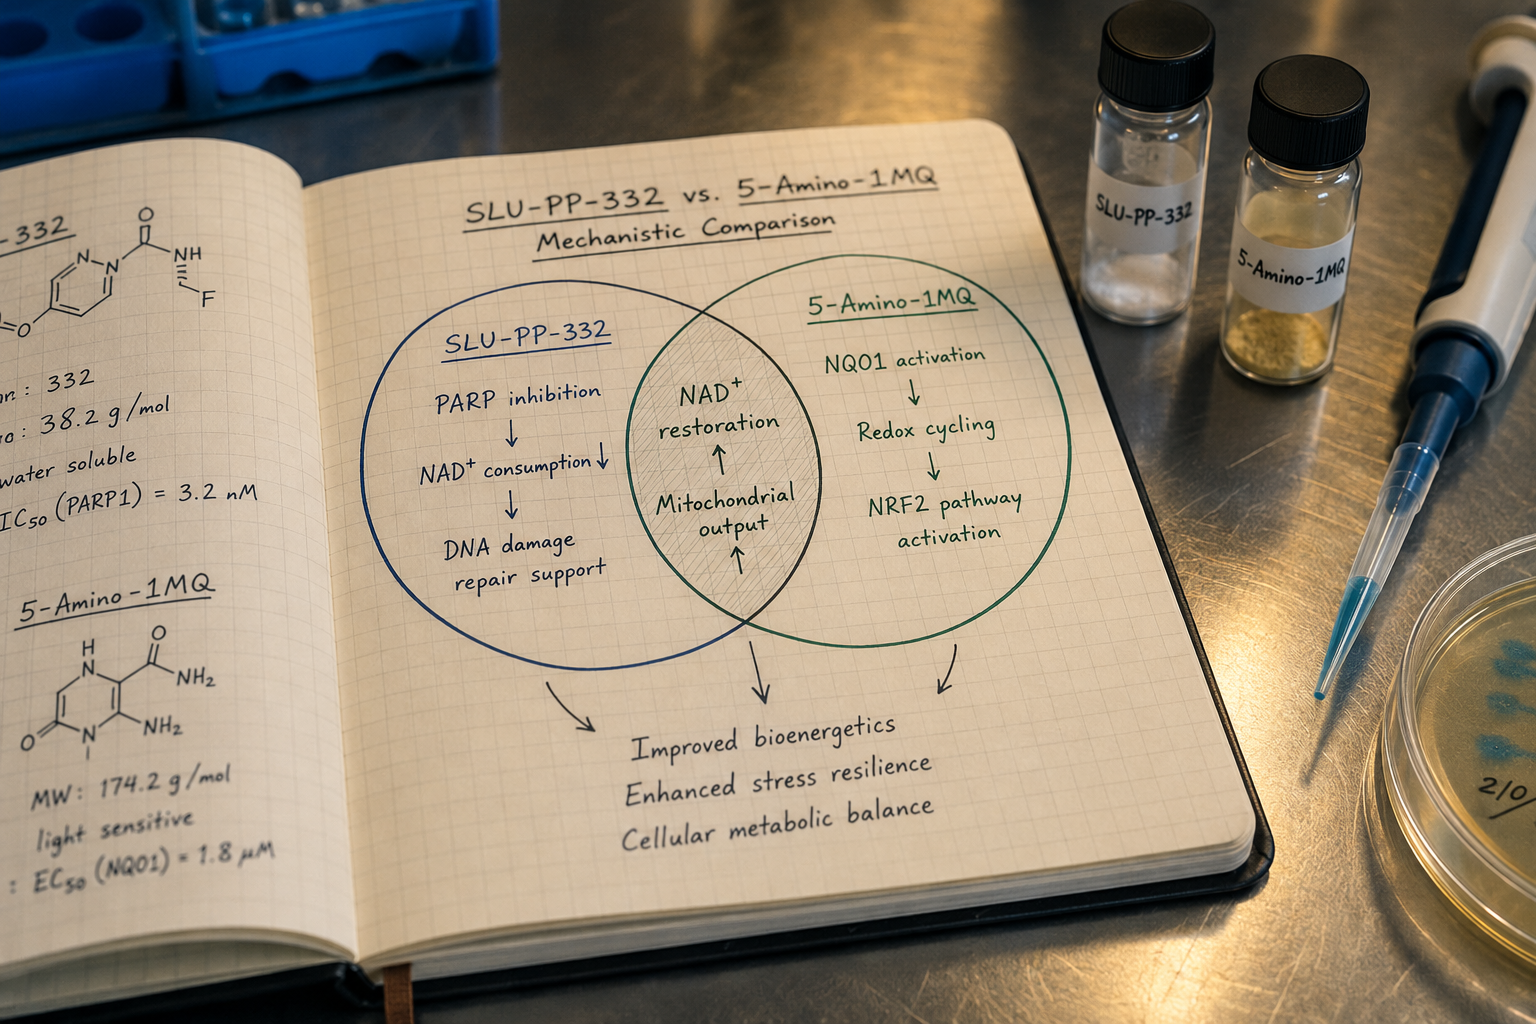 -332
O
N
N
NH
F
O
O
: 332
: 38.2 g/mol
water soluble
IC50 (PARP1) = 3.2 nM
5-Amino-1MQ
H
N
O
NH2
NH2
N
O
MW: 174.2 g/mol
light sensitive
: EC50 (NQO1) = 1.8 µM
SLU-PP-332 vs. 5-Amino-1MQ
Mechanistic Comparison
SLU-PP-332
PARP inhibition
↓
NAD+ consumption↓
↓
DNA damage
repair support
NAD+
restoration
↑
Mitochondrial
output
↑
5-Amino-1MQ
NQO1 activation
↓
Redox cycling
↓
NRF2 pathway
activation
Improved bioenergetics
Enhanced stress resilience
Cellular metabolic balance
SLU-PP-332
5-Amino-1MQ
2/0/